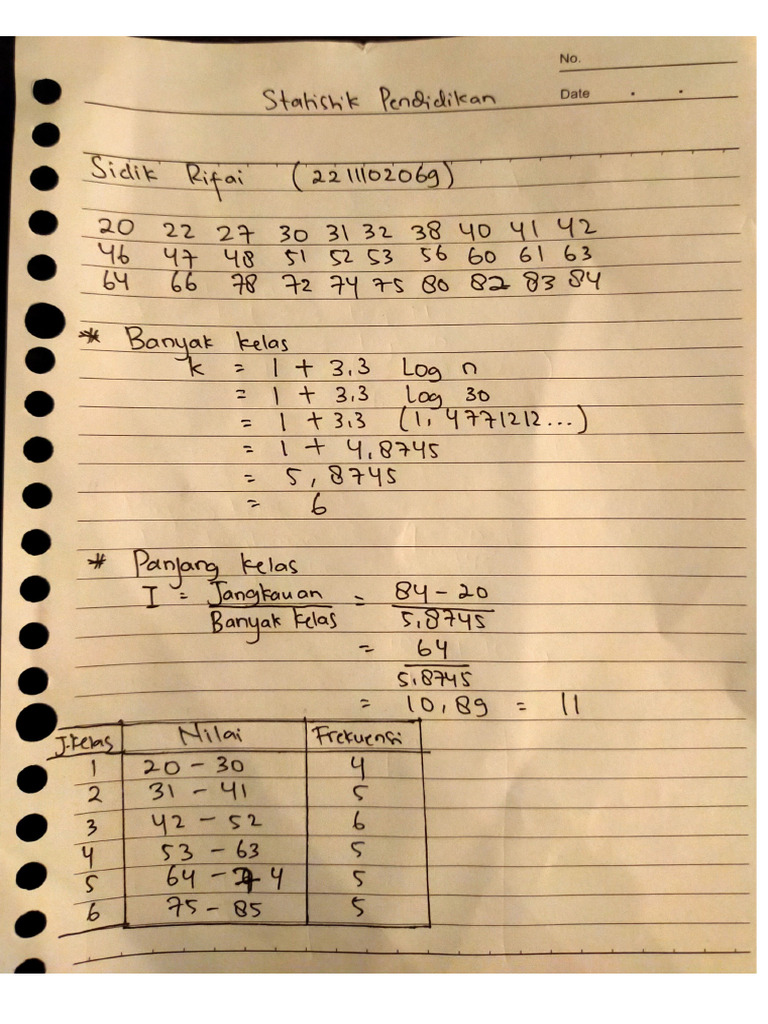 No.
Date
Statistik Pendidikan
Sidik Rifai (2211102069)
20 22 27 30 31 32 38 40 41 42
46 47 48 51 52 53 56 60 61 63
64 66 78 72 74 75 80 82 83 84
* Banyak kelas
k = 1 + 3,3 Log n
= 1 + 3,3 Log 30
= 1 + 3,3 (1,4771212...)
= 1 + 4,8745
= 5,8745
= 6
* Panjang kelas
I = Jangkauan / Banyak kelas = 84 - 20 / 5,8745
= 64 / 5,8745
= 10,89 = 11
J.Kelas Nilai Frekuensi
1 20 - 30 4
2 31 - 41 5
3 42 - 52 6
4 53 - 63 5
5 64 - 74 5
6 75 - 85 5